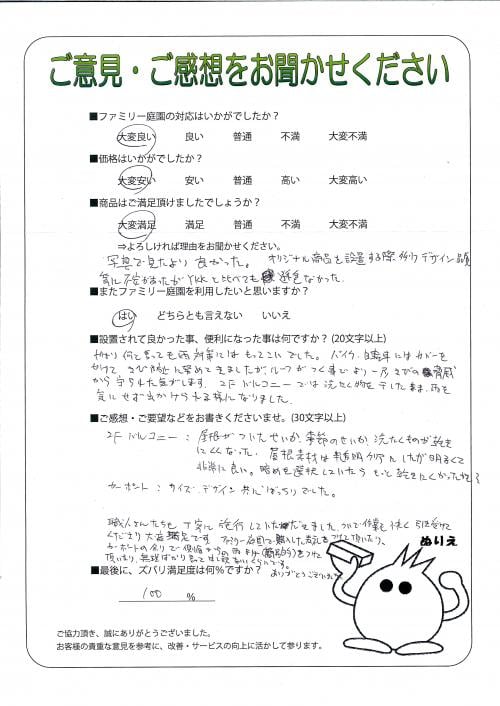 ご意見・ご感想をお聞かせください
■ファミリー庭園の対応はいかがでしたか？
大変良い 良い 普通 不満 大変不満
■価格はいかがでしたか？
大変安い 安い 普通 高い 大変高い
■商品はご満足頂けましたでしょうか？
大変満足 満足 普通 不満 大変不満
⇒よろしければ理由をお聞かせください。
写真で見たより良かった。オリジナル商品を設置する際
YKKと比べても
■またファミリー庭園を利用したいと思いますか？
はい どちらとも言えない いいえ
■設置されて良かった事、便利になった事は何ですか？(20文字以上)
やはり何と言っても雨対策にはもってこいでした。バイク、自転車にはカバーを
かけて
から守られた気がします。2Fバルコニーでは洗たく物を干したまま、雨を
気にせず出かけられる様になりました。
■ご感想・ご要望などをお書きくださいませ。(30文字以上)
2Fバルコニー：屋根がついたせいか、季節のせいか、洗たくものが乾き
にくくなった。屋根素材は クリアにしたが明るくて
非常に良い。暗めを選択していたらもっと乾きにくかったかも
カーポート：サイズ、デザイン共にばっちりでした。
職人さんたちも丁寧に施行していただきました。
■最後に、ズバリ満足度は何%ですか？
ありがとうございました
100 %
ぬりえ
ご協力頂き、誠にありがとうございました。
お客様の貴重な意見を参考に、改善・サービスの向上に活かして参ります。